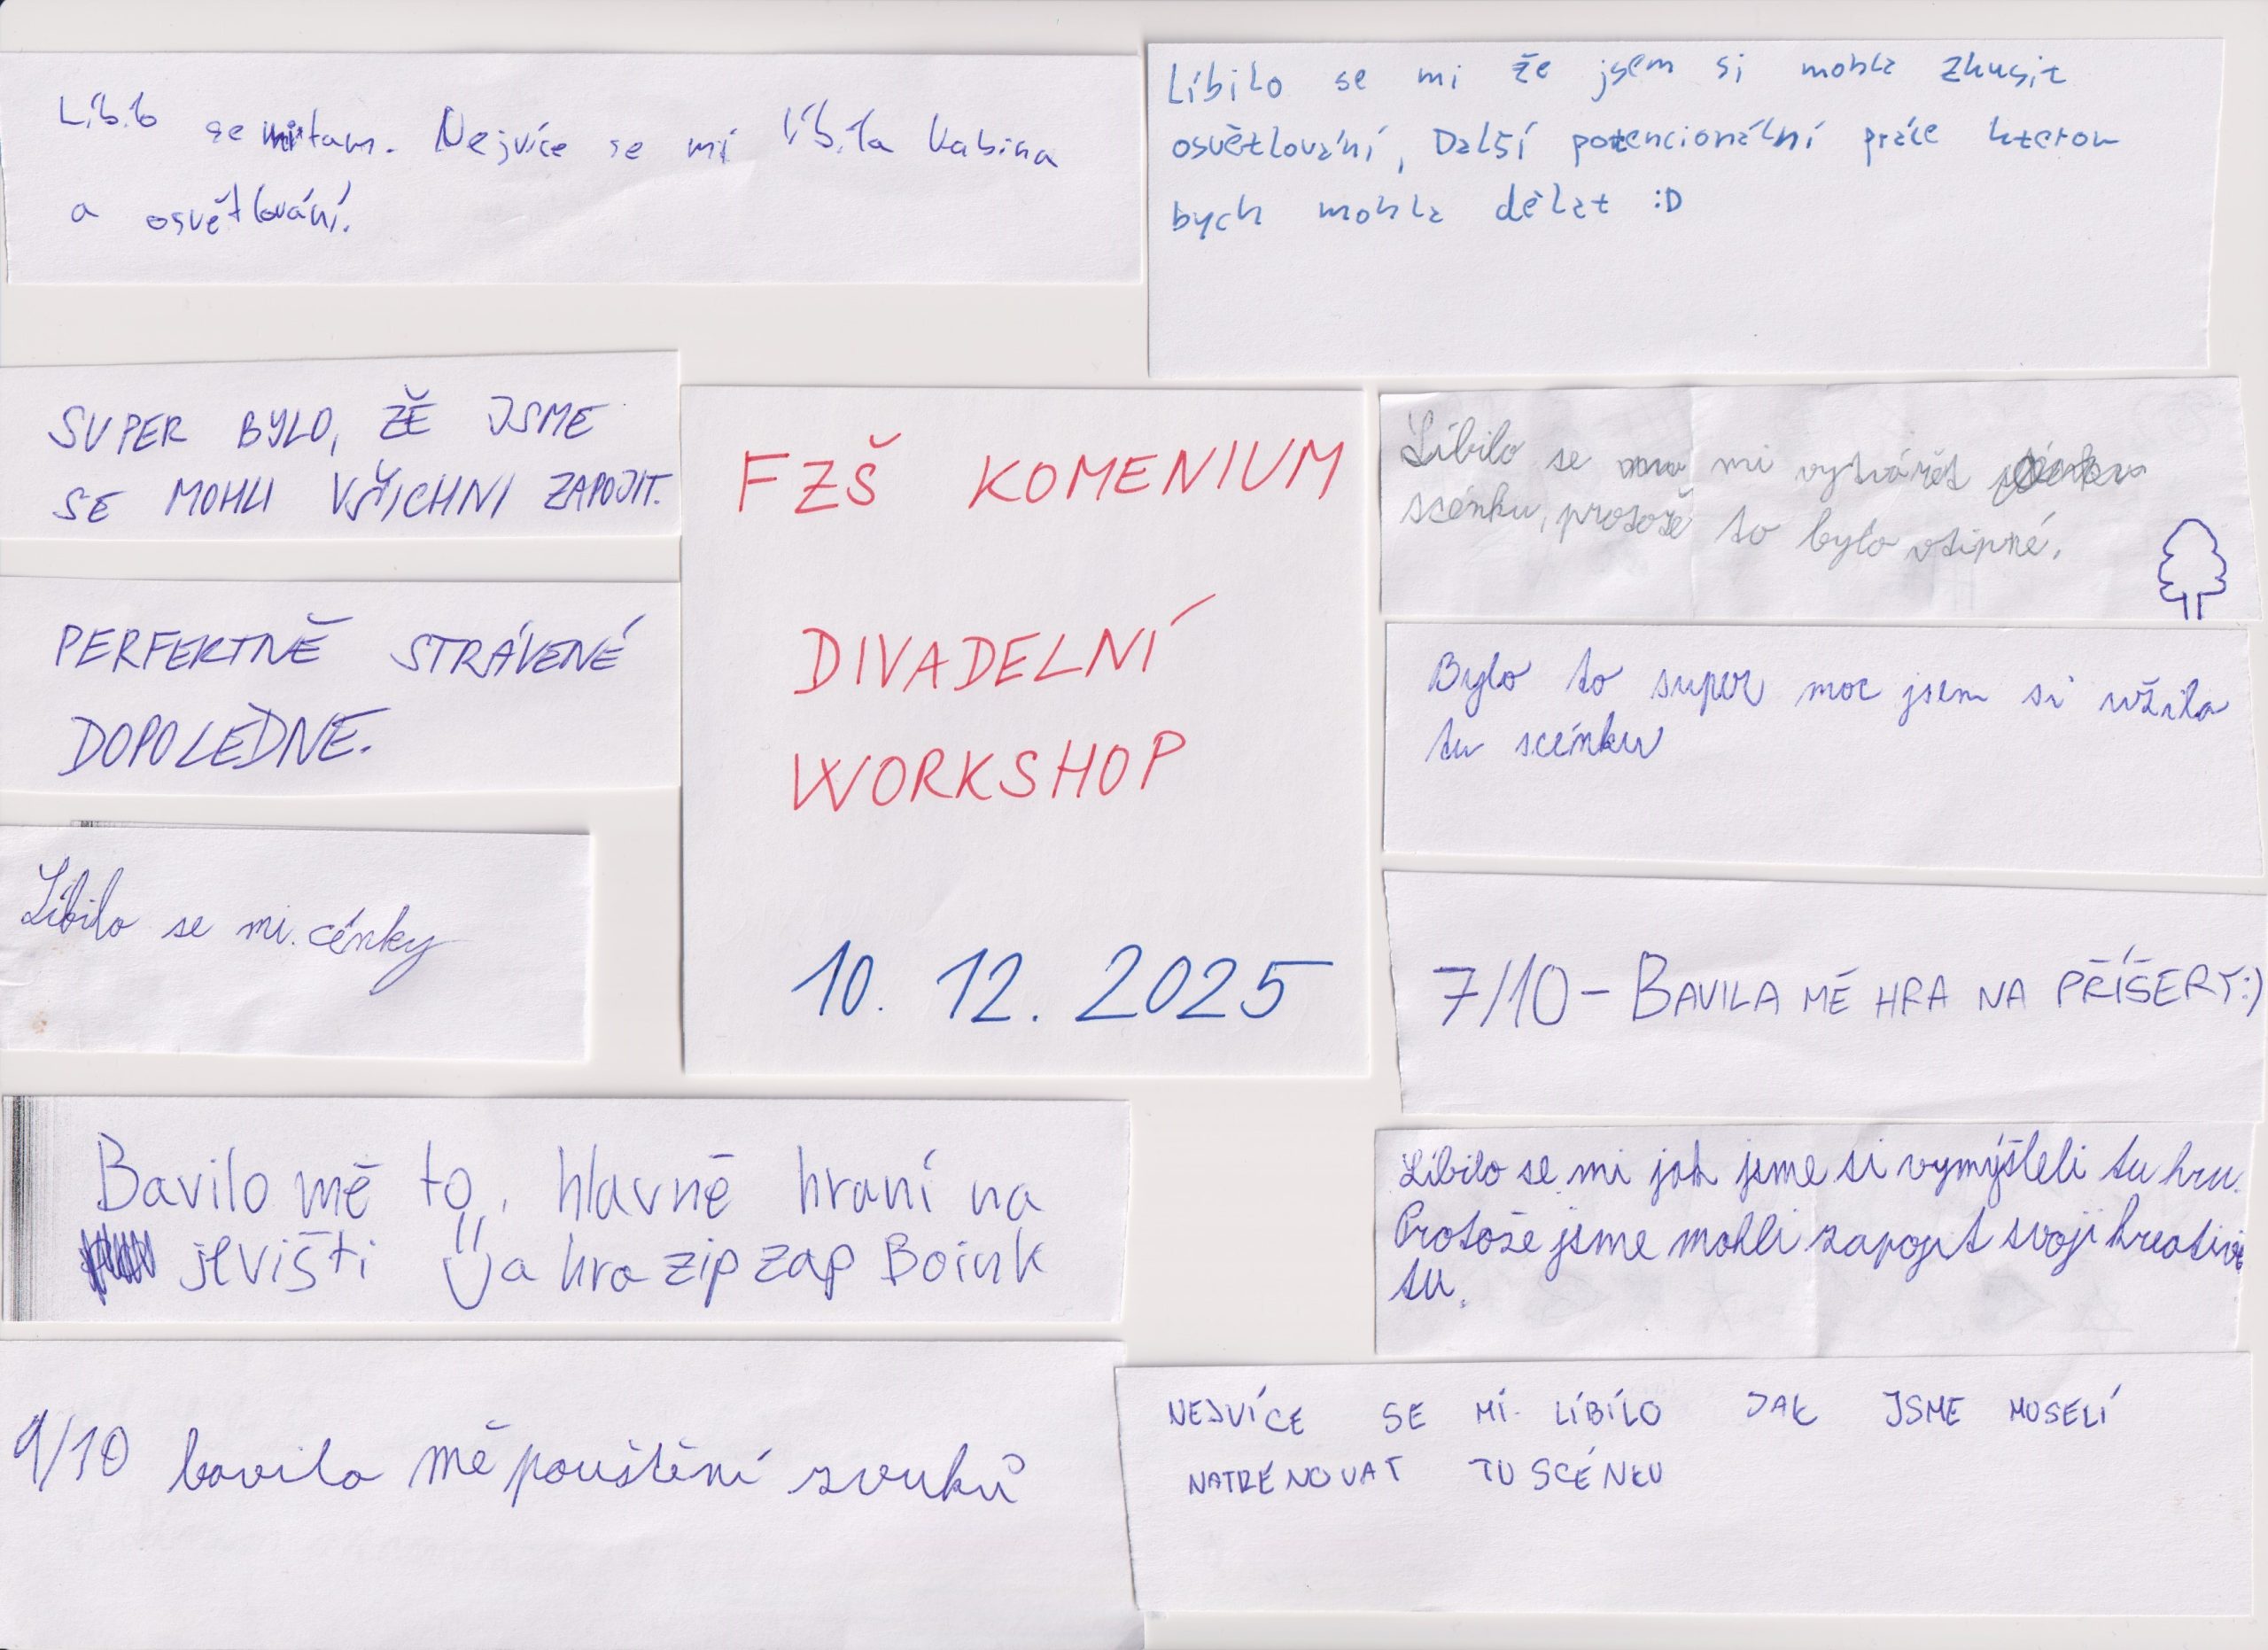 Líbilo se mi tam. Nejvíce se mi líbila kabina
a osvětlování.
Líbilo se mi že jsem si mohla zkusit
osvětlování, Další potencionální práce kterou
bych mohla dělat :D
SUPER BYLO, ŽE JSME
SE MOHLI VŠICHNI ZAPOJIT.
PERFEKTNĚ STRÁVENÉ
DOPOLEDNE.
Líbilo se mi cénky
FZŠ KOMENIUM
DIVADELNÍ
WORKSHOP
10. 12. 2025
Líbilo se mi vytvářet
scénku, protože to bylo vtipné.
Bylo to super moc jsem si užila
tu scénku
7/10 - BAVILA MĚ HRA NA PŘÍŠERY:)
Bavilo mě to, hlavně hraní na
jevišti a hra zip zap Boink
Líbilo se mi jak jsme si vymýšleli tu hru.
Protože jsme mohli zapojit svoji kreativi
tu.
9/10 bavilo mě pouštění zvuků
NEJVÍCE SE MI LÍBÍLO JAK JSME MUSELÍ
NATRÉNOVAT TU SCÉNKU